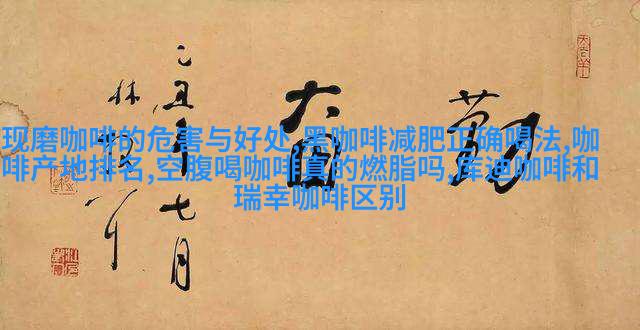 现磨咖啡的危害与好处,黑咖啡减肥正确喝法,咖
啡产地排名,空腹喝咖啡真的燃脂吗,库迪咖啡和
瑞幸咖啡区别
勤
乙丑年七月